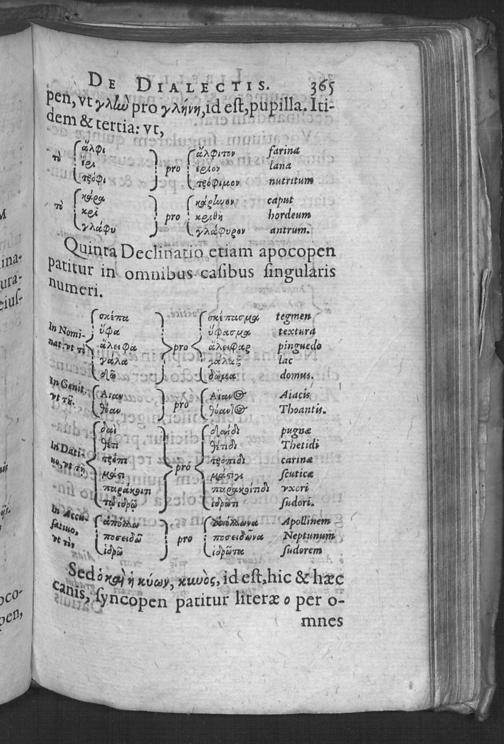 DE DIALECTIS. 365
pen, vt γλίω pro γλήνη, id est, pupilla. Iti-
dem & tertia: vt,
τὸ ἄλφι pro ἄλφιτον farina
ἔρι ἔριον lana
τρόφι τρόφιμον nutritum
τὸ κάρα pro κάρηνον caput
κρῖ κριθὴ hordeum
γλάφυ γλάφυρον antrum.
Quinta Declinatio etiam apocopen
patitur in omnibus casibus singularis
numeri.
In Nomi-
nat. vt τὶ
σκέπα pro σκέπασμα tegmen
ὕφα ὕφασμα textura
ἄλειφα ἄλειφαρ pinguedo
γάλα γάλαξ lac
δῶ δῶμα domus.
In Genit.
vt τῦ
Αἴαν pro Αἴαντος Aiacis
θόαν θόαντος Thoantis.
In Dati-
uo, vt τῳ
δαῒ pro pugnæ
θέτι θέτιδι Thetidi
τρόπι τρόπιδι carinæ
μάστι μάστιγι scuticæ
παρακοίτι παρακοίτιδι vxori
τῷ ἱδρῶ ἱδρῶτι sudori.
In Accu
satiuo,
vt τὸν
ἀπόλλω pro ἀπόλλωνα Apollinem
ποσειδῶ ποσειδῶνα Neptunum
ἱδρῶ ἱδρῶτα sudorem
Sed ὁ καὶ ἡ κύων, κυνὸς, id est, hic & hæc
canis, syncopen patitur literæ ο per o-
mnes